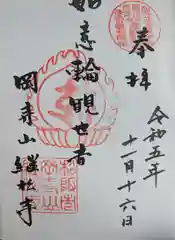 奉拝
令和五年
十一月十六日
如意輪観世音
岡寺山継松寺